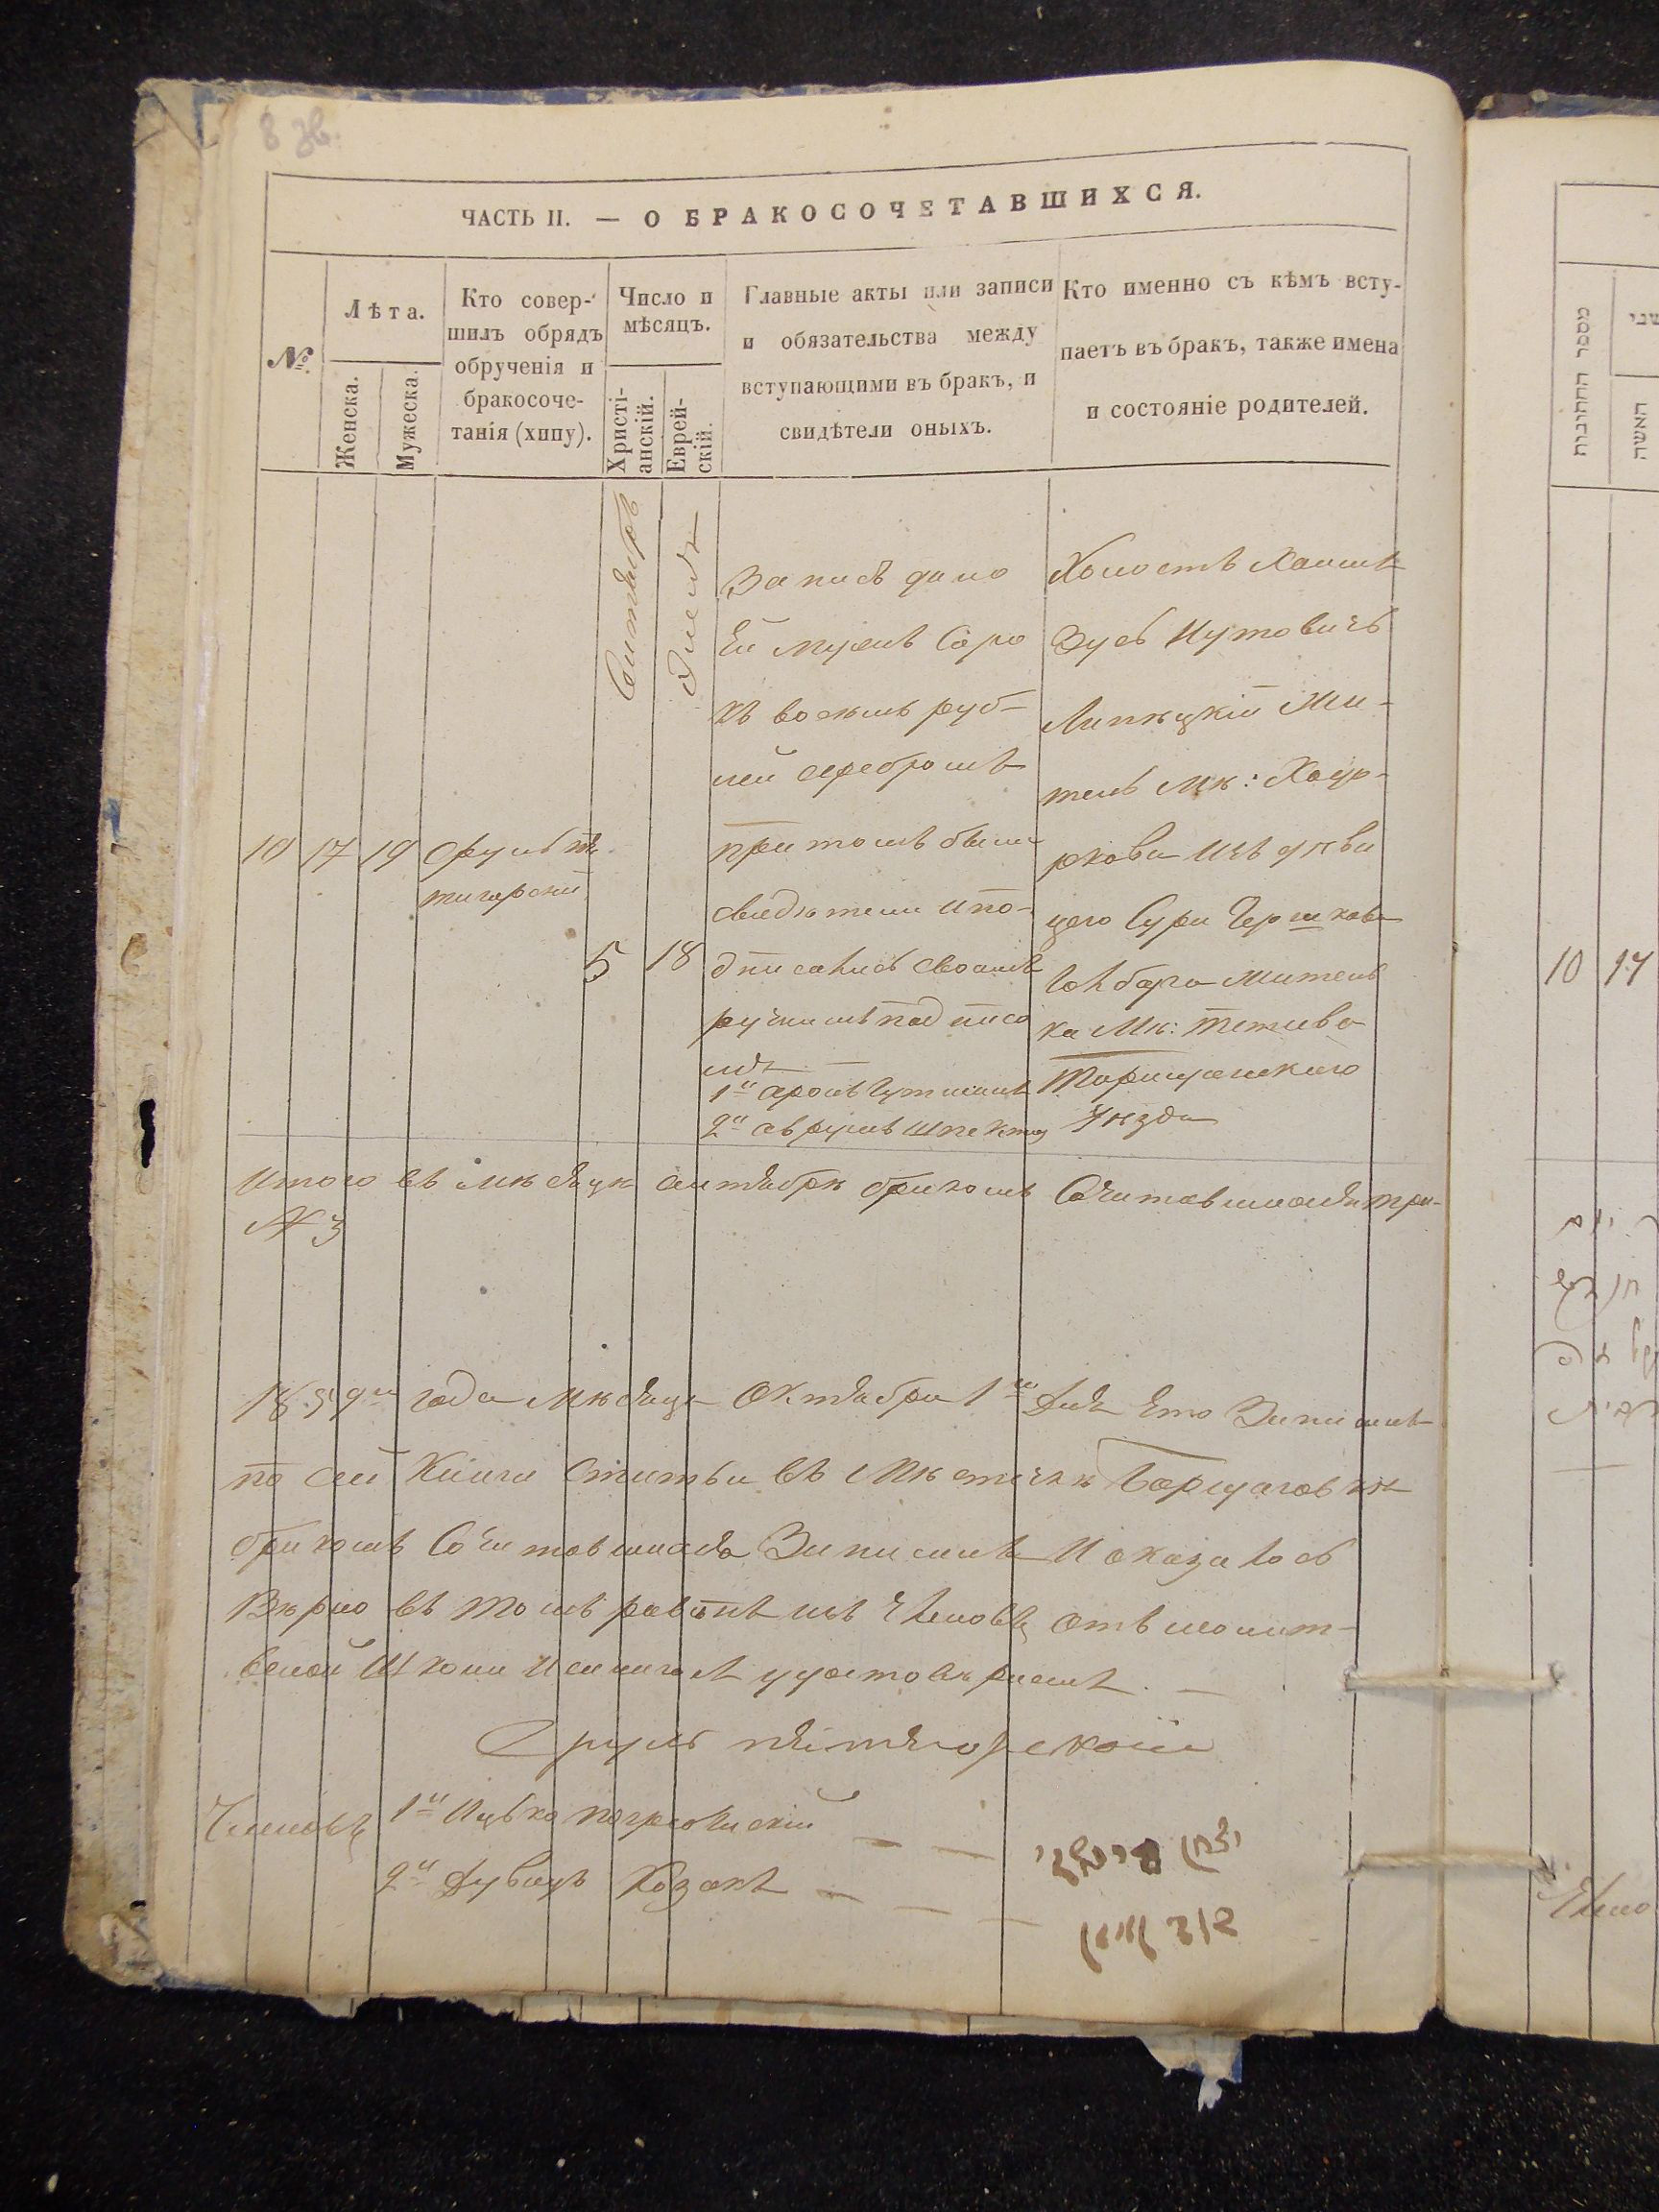 8 зв.
ЧАСТЬ II. — О БРАКОСОЧЕТАВШИХСЯ.
№
Лѣта.
Женска.
Мужеска.
Кто совер-
шилъ обрядъ
обрученія и
бракосоче-
танія (хипу).
Число и
мѣсяцъ.
Христі-
анскій.
Еврей-
скій.
Главные акты или записи
и обязательства между
вступающими въ бракъ, и
свидѣтели оныхъ.
Кто именно съ кѣмъ всту-
паетъ въ бракъ, также имена
и состояніе родителей.
10 17 19 Сруль
5 18
Записъ дано
Ей мужемъ Соро
къ восемъ руб-
лей серебромъ
притомъ были
свидѣтели и по-
дписалисъ своимъ
ручнимъ подписо
мъ
1й Аронъ Гутманъ
2й Аврумъ
Холостъ Хаимъ
Зусъ Нутовичъ
Липецкій Жи-
телъ Мк: Ходо-
ркова изъ дѣви
цею Сури Гершкова
Голбарга Жителъ
ка Мк: Тетиева
Таращанского
Уѣзда
Итого въ мѣсяцѣ сентябрѣ бракомъ Сочитавшихся три-
№ 3
1859го года Мѣсяца Октября 1го Дня
по сей Книги Статьи въ Мѣстечкѣ Борщаговкѣ
бракомъ Сочитавшихся Записанъ И оказалось
Вѣрно въ томъ равинъ изъ Членовъ отъ молит-
веной Школи удостовѣряемъ. —
Сруль Пятигорской
Членовъ 1й Ицько Погребискій — —
2й Дувидъ Козакъ — — —
מספר החתונות
האשה
10 17